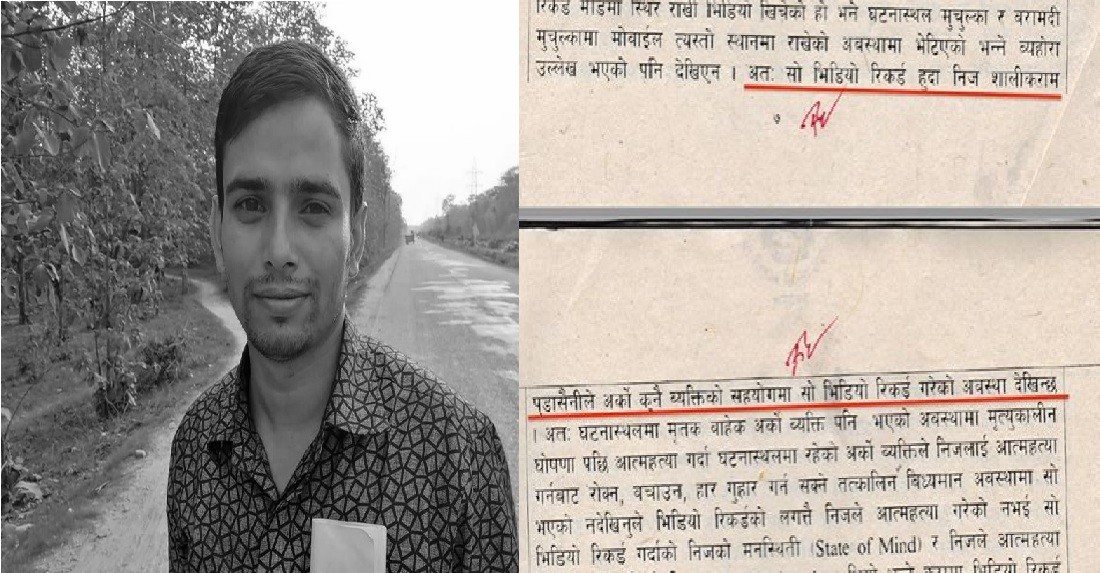 रिकर्ड मोडमा स्थिर राखी भिडियो खिचेको हो भने घटनास्थल मुचुल्का र बरामदी
मुचुल्कामा मोबाईल त्यस्तो स्थानमा राखेको अवस्थामा भेटिएको भन्ने व्यहोरा
उल्लेख भएको पनि देखिएन । अतः सो भिडियो रिकर्ड हुदा निज शालीकराम
७
पुडासैनीले अर्को कुनै व्यक्तिको सहयोगमा सो भिडियो रिकर्ड गरेको अवस्था देखिन्छ
। अतः घटनास्थलमा मृतक बाहेक अर्को व्यक्ति पनि भएको अवस्थामा मृत्युकालीन
घोषणा पछि आत्महत्या गर्दा घटनास्थलमा रहेको अर्को व्यक्तिले निजलाई आत्महत्या
गर्नबाट रोक्न, बचाउन, हार गुहार गर्न सक्ने तत्कालिन विध्यमान अवस्थामा सो
भएको नदेखिनुले भिडियो रिकर्डको लगत्तै निजले आत्महत्या गरेको नभई सो
भिडियो रिकर्ड गर्दाको निजको मनस्थिती (State of Mind) र निजले आत्महत्या
भिडियो रिकर्ड